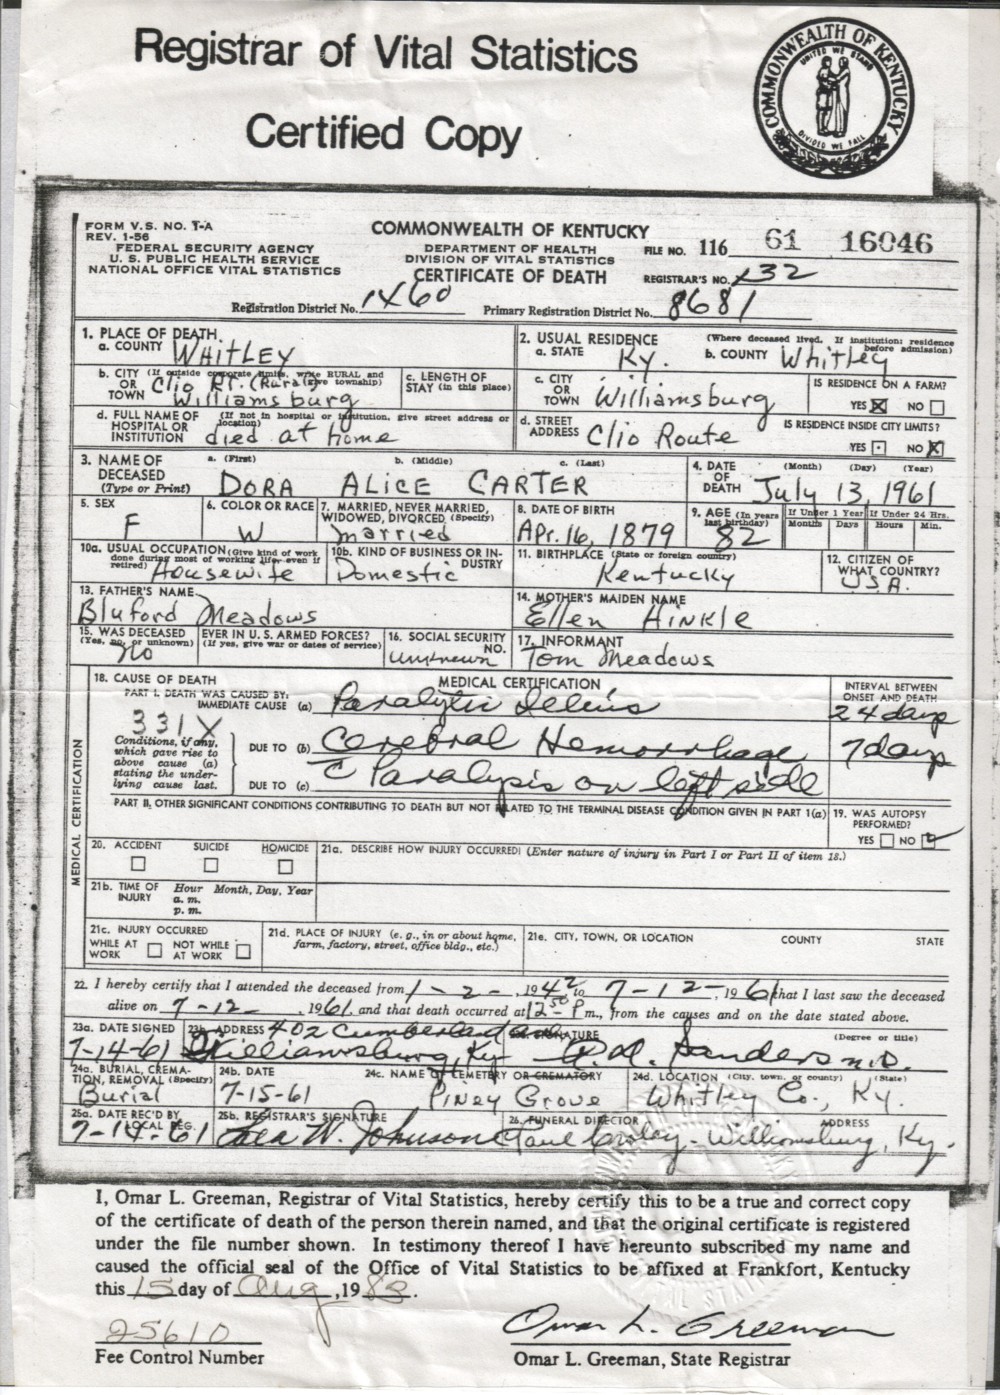 Registrar of Vital Statistics
Certified Copy
COMMONWEALTH OF KENTUCKY
UNITED WE STAND
DIVIDED WE FALL
FORM V.S. NO. 1-A
REV. 1-56
FEDERAL SECURITY AGENCY
U. S. PUBLIC HEALTH SERVICE
NATIONAL OFFICE VITAL STATISTICS
COMMONWEALTH OF KENTUCKY
DEPARTMENT OF HEALTH
DIVISION OF VITAL STATISTICS
CERTIFICATE OF DEATH
FILE NO. 116 61 16046
REGISTRAR'S NO. 132
Registration District No. 1460
Primary Registration District No. 8681
1. PLACE OF DEATH
a. COUNTY WHITLEY
2. USUAL RESIDENCE (Where deceased lived. If institution: residence before admission)
a. STATE Ky. b. COUNTY Whitley
b. CITY (If outside corporate limits, write RURAL and give township)
OR TOWN Clio Rt. (Rural) Williamsburg
c. LENGTH OF STAY (in this place)
c. CITY OR TOWN Williamsburg
IS RESIDENCE ON A FARM?
YES X NO
d. FULL NAME OF HOSPITAL OR INSTITUTION (If not in hospital or institution, give street address or location)
died at home
d. STREET ADDRESS Clio Route
IS RESIDENCE INSIDE CITY LIMITS?
YES NO X
3. NAME OF DECEASED (Type or Print)
a. (First) b. (Middle) c. (Last)
DORA ALICE CARTER
4. DATE OF DEATH (Month) (Day) (Year)
July 13, 1961
5. SEX F
6. COLOR OR RACE W
7. MARRIED, NEVER MARRIED, WIDOWED, DIVORCED (Specify) Married
8. DATE OF BIRTH Apr. 16, 1879
9. AGE (In years last birthday) 82
If Under 1 Year Months Days
If Under 24 Hrs. Hours Min.
10a. USUAL OCCUPATION (Give kind of work done during most of working life, even if retired) Housewife
10b. KIND OF BUSINESS OR INDUSTRY Domestic
11. BIRTHPLACE (State or foreign country) Kentucky
12. CITIZEN OF WHAT COUNTRY? U.S.A.
13. FATHER'S NAME Bluford Meadows
14. MOTHER'S MAIDEN NAME Ellen Hinkle
15. WAS DECEASED EVER IN U. S. ARMED FORCES?
(Yes, no, or unknown) (If yes, give war or dates of service)
No
16. SOCIAL SECURITY NO. unknown
17. INFORMANT Tom Meadows
MEDICAL CERTIFICATION
18. CAUSE OF DEATH
MEDICAL CERTIFICATION
INTERVAL BETWEEN ONSET AND DEATH
PART I. DEATH WAS CAUSED BY:
IMMEDIATE CAUSE (a) Paralytic Ileus 24 days
331X
Conditions, if any, which gave rise to above cause (a) stating the underlying cause last.
DUE TO (b) Cerebral Hemorrhage 7 days
DUE TO (c) c Paralysis on left side
PART II. OTHER SIGNIFICANT CONDITIONS CONTRIBUTING TO DEATH BUT NOT RELATED TO THE TERMINAL DISEASE CONDITION GIVEN IN PART 1(a)
19. WAS AUTOPSY PERFORMED?
YES NO
20. ACCIDENT SUICIDE HOMICIDE
21a. DESCRIBE HOW INJURY OCCURRED! (Enter nature of injury in Part I or Part II of item 18.)
21b. TIME OF INJURY Hour Month, Day, Year
a. m.
p. m.
21c. INJURY OCCURRED
WHILE AT WORK NOT WHILE AT WORK
21d. PLACE OF INJURY (e. g., in or about home, farm, factory, street, office bldg., etc.)
21e. CITY, TOWN, OR LOCATION COUNTY STATE
22. I hereby certify that I attended the deceased from 1-2-, 1942 to 7-12-, 1961 that I last saw the deceased
alive on 7-12, 1961, and that death occurred at 12 50 P m., from the causes and on the date stated above.
23a. DATE SIGNED 7-14-61
23b. ADDRESS 402 Cumberland Ave Williamsburg, Ky
SIGNATURE (Degree or title)
Sanders M.D.
24a. BURIAL, CREMATION, REMOVAL (Specify) Burial
24b. DATE 7-15-61
24c. NAME OF CEMETERY OR CREMATORY Piney Grove
24d. LOCATION (City, town, or county) (State)
Whitley Co., Ky.
25a. DATE REC'D BY LOCAL REG. 7-14-61
25b. REGISTRAR'S SIGNATURE W. Johnson
26. FUNERAL DIRECTOR ADDRESS
Paul Croley - Williamsburg, Ky.
I, Omar L. Greeman, Registrar of Vital Statistics, hereby certify this to be a true and correct copy
of the certificate of death of the person therein named, and that the original certificate is registered
under the file number shown. In testimony thereof I have hereunto subscribed my name and
caused the official seal of the Office of Vital Statistics to be affixed at Frankfort, Kentucky
this 15 day of Aug, 1983.
25610
Fee Control Number
Omar L. Greeman
Omar L. Greeman, State Registrar